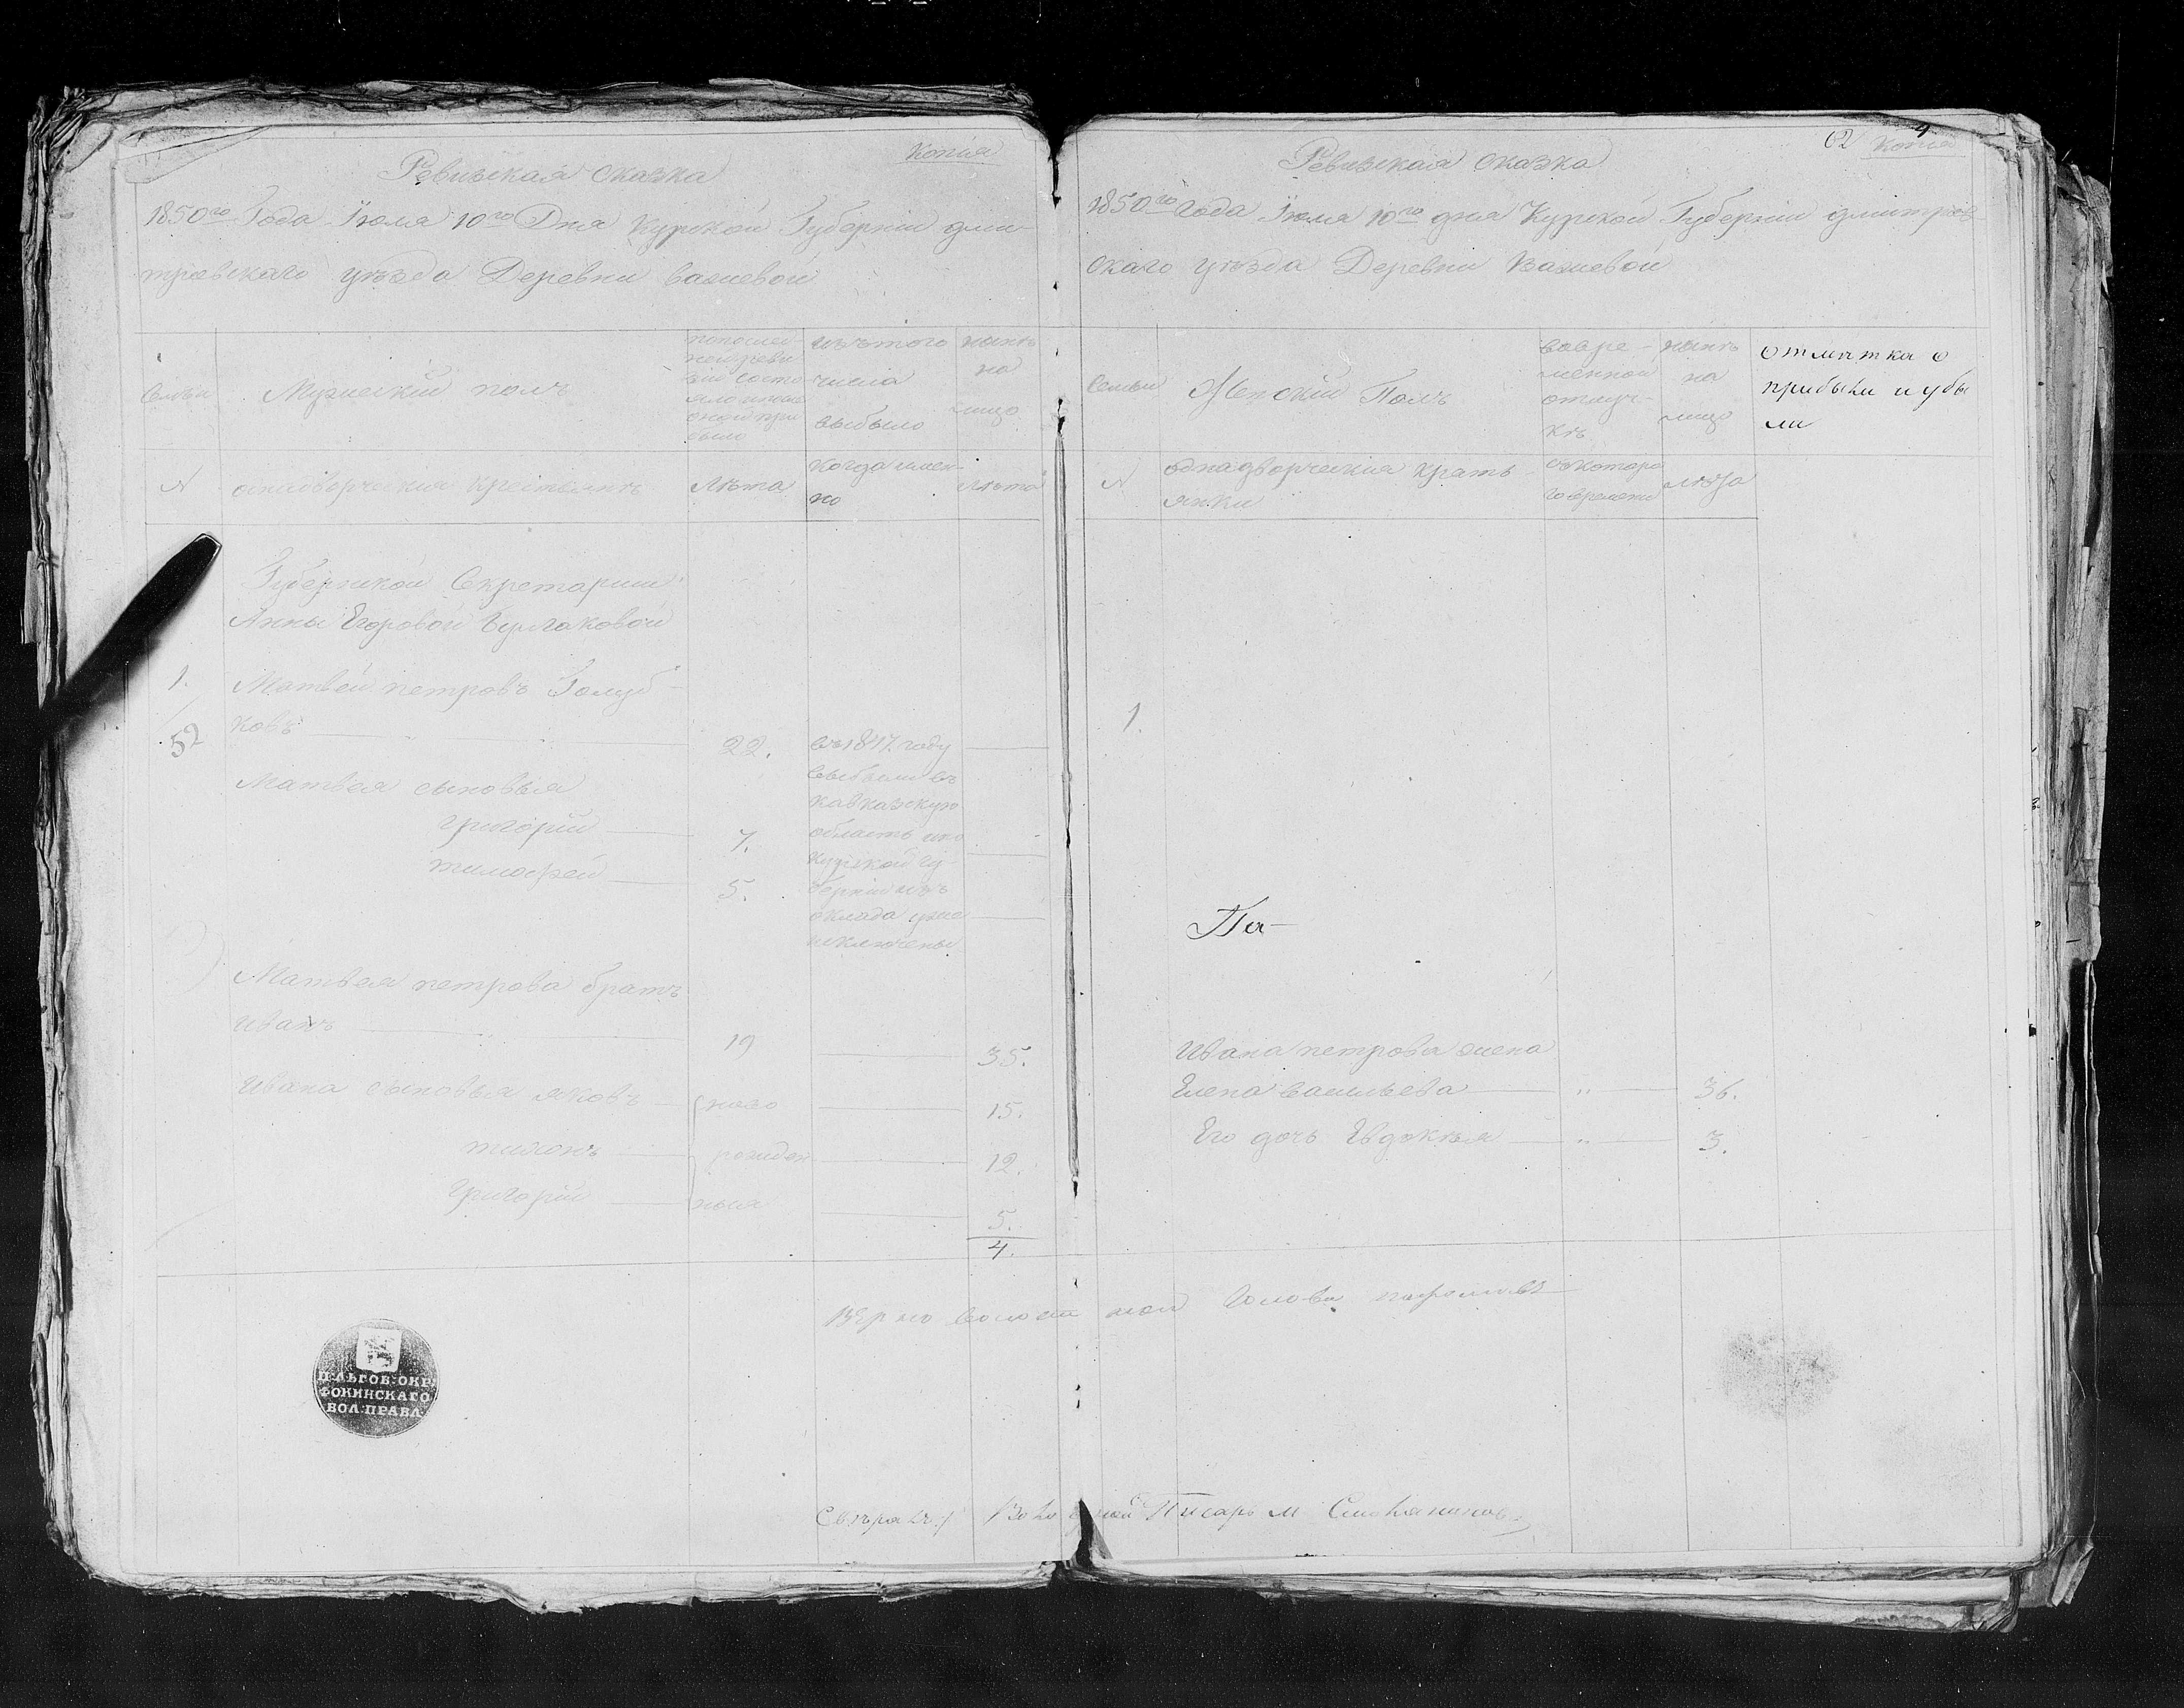 Копія
Ревизская Сказка
1850го Года Іюля 10го Дня Курской Губерніи дми-
тровскаго уѣзда Деревни важевой
Семьи
Мужескій полъ
по послед
ней реви
зіи состо
яло и после
оной при
было
изъ того
числа
выбыло
нынѣ
на
лицо
№
однодворческія крестьянѣ
лѣта
когда имен-
но
лѣта
Губернской Секретарши
Анны Егоровой Булгаковой
1.
52
Матвей петровъ Голуб-
ковъ
22.
въ 1847 году
выбыли въ
кавказкую
область и по
Курской гу-
берніи изъ
оклада уже
исключены
Матвея сыновья
григорій
7.
тимофей
5.
Матвея петрова братъ
иванъ
19
35.
ивана сыновья яковъ
ново
15.
тихонъ
рожден
12.
Григорій
ныя
5.
4.
П: ЛЬГОВ: ОКР:
ФОКИНСКАГО
ВОЛ: ПРАВЛ:
62
4
Копія
Ревизская сказка
1850го года Іюля 10го дня Курской Губерніи дмитров
скаго уѣзда Деревни Важевой
Семьи
Женскій Полъ
вовре-
менной
отлуч-
кѣ
нынѣ
на
лицо
отмѣтка о
прибыли и убы
ли
№
однадворческія крать-
янки
съ котора
го времени
лѣта
1.
Ивана петрова жена
Елена васильева
"
36.
Его дочь Евдокѣя
"
3.
Верно волостной Голова
Свѣрялъ: Волостной Писарь М